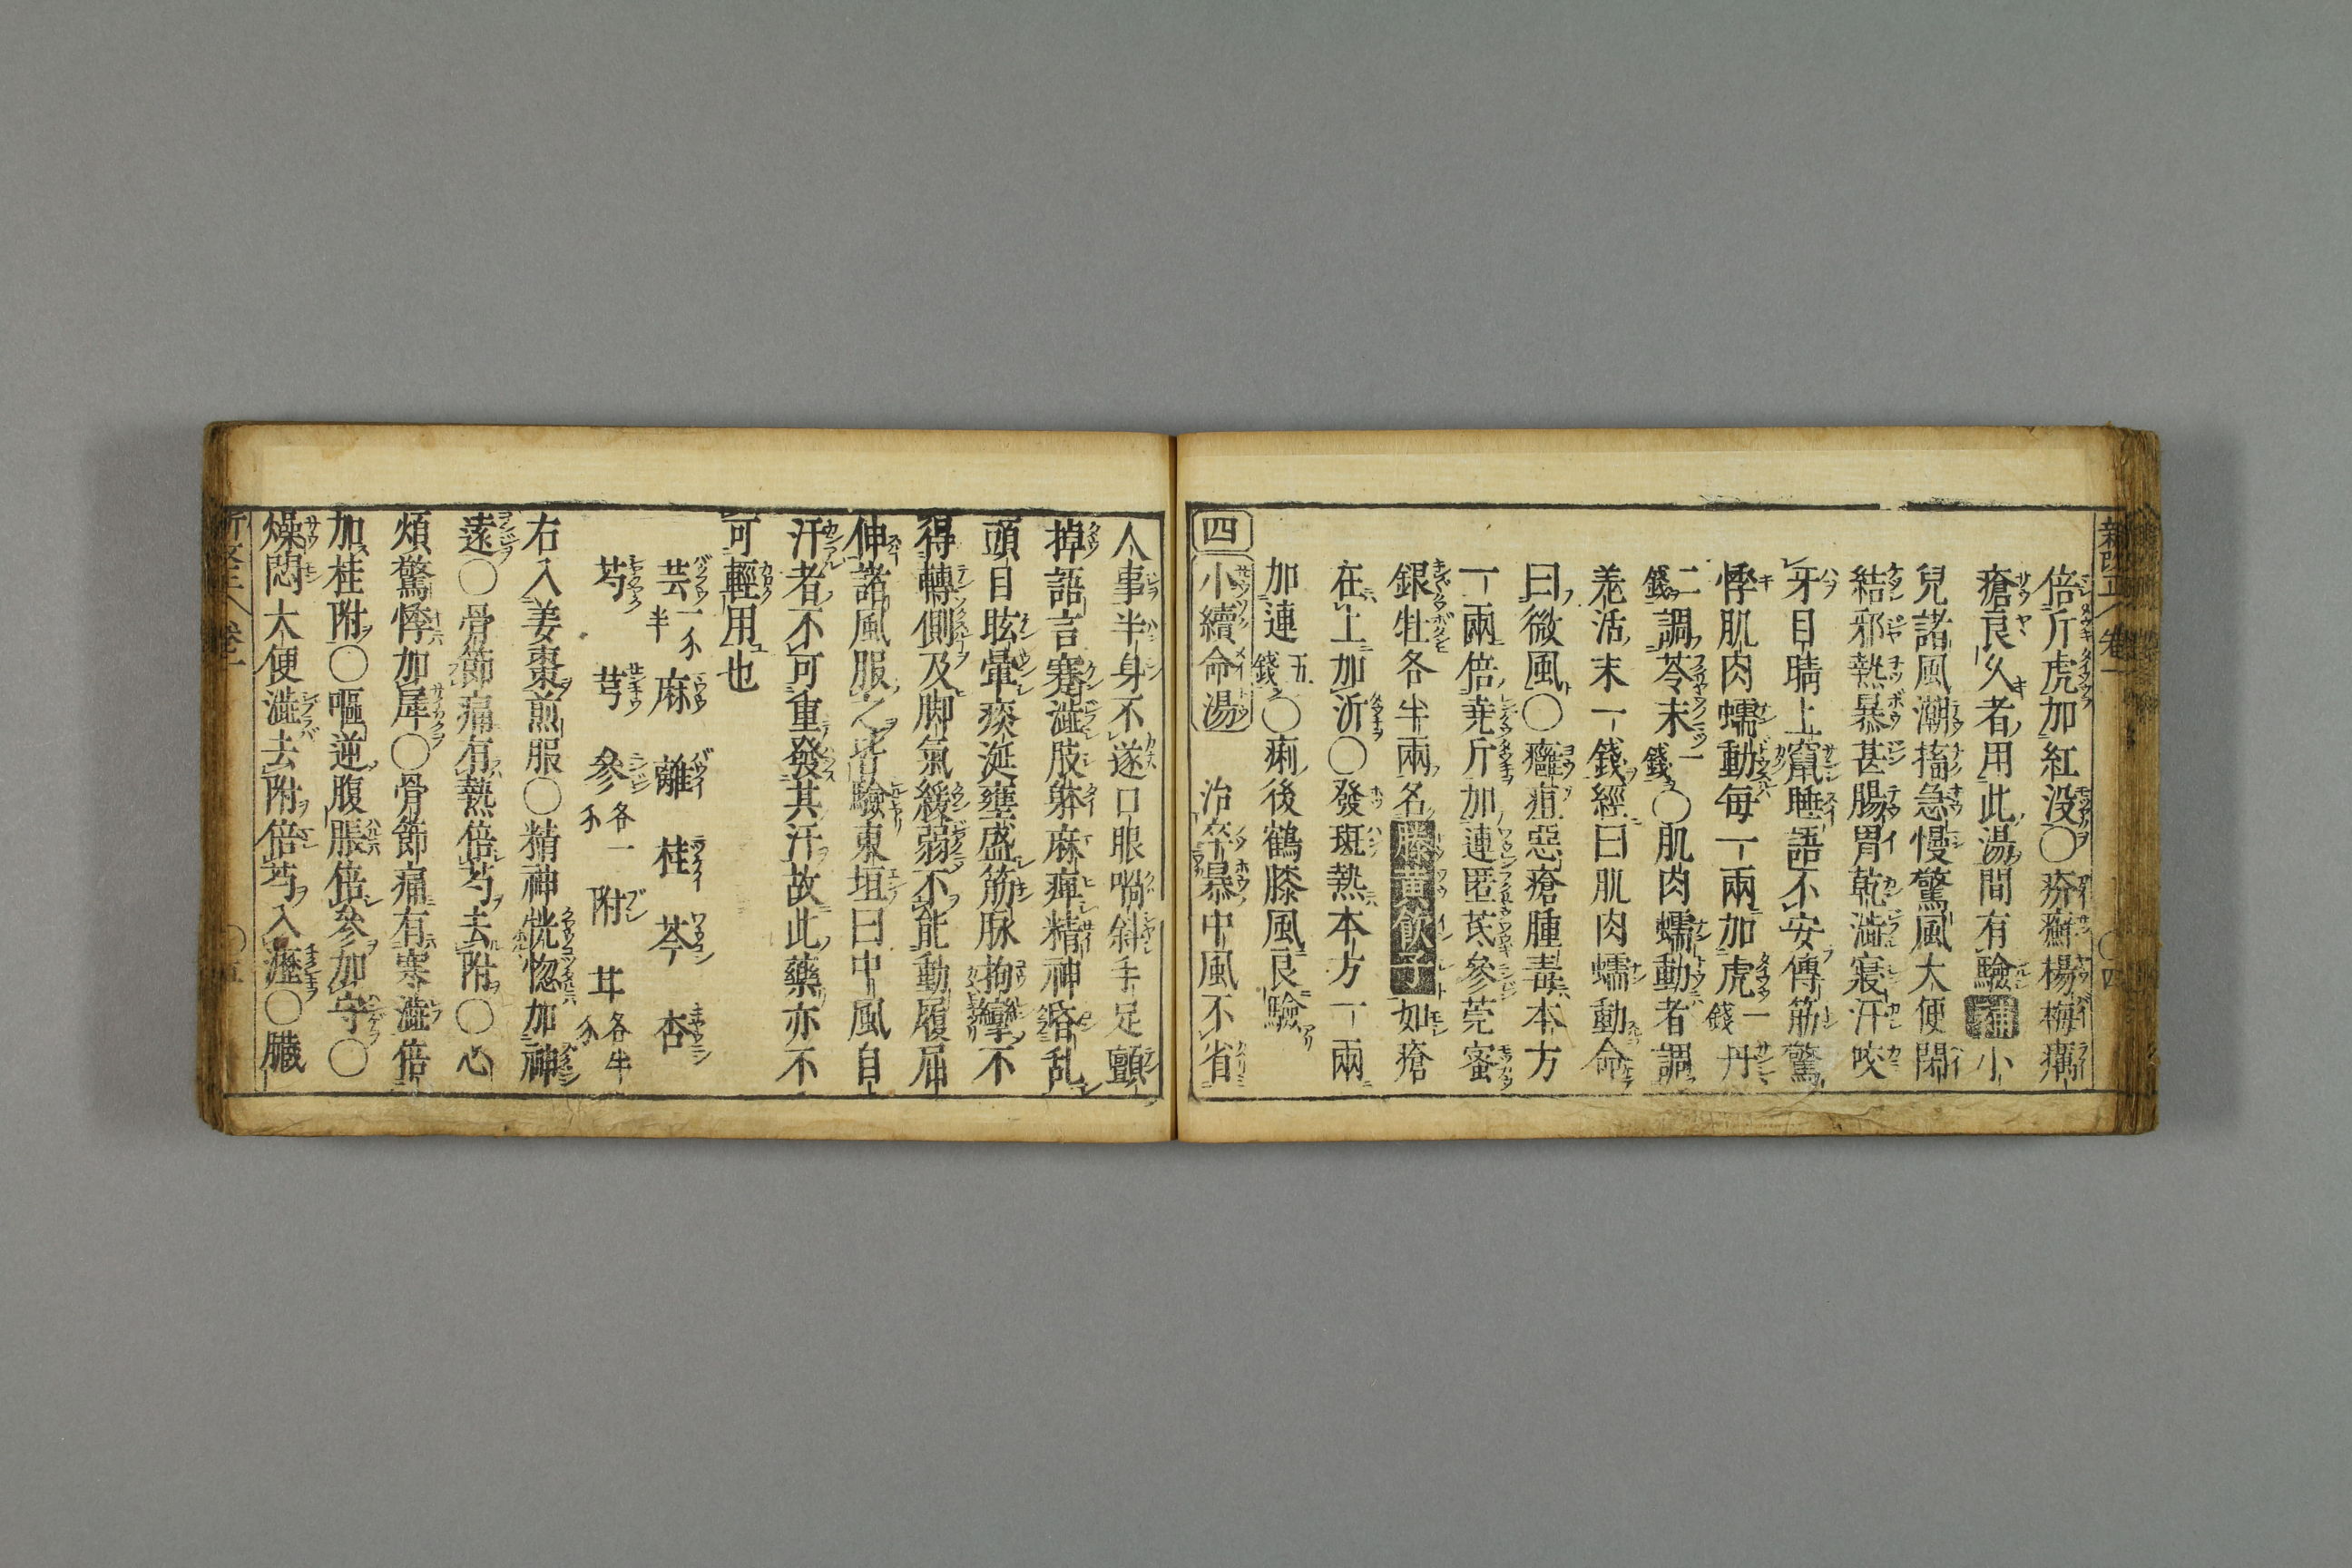 倍斤虎加紅没〇疥癬楊梅癘
瘡良久者用此湯間有驗 補 小
兒諸風潮搐急慢驚風大便閉
結邪熱暴甚腸胃乾澁寢汗咬
牙目睛上竄睡語不安傅筋驚
悸肌肉蠕動每一兩加虎一錢丹
二錢調芩末一錢〇肌肉蠕動者調
羗活末一錢經曰肌肉蠕動命
曰微風〇癰疽惡瘡腫毒本方
一兩倍荛斤加連匿芪參莞蜜
銀牡各半兩名勝黄飲子如瘡
在上加沂〇發斑熱本方一兩
加連五錢〇痢後鶴膝風良驗
四 小續命湯 治卒暴中風不省
人事半身不遂口眼喎斜手足顫
掉語言蹇澁肢躰麻痺精神昏乱
頭目眩暈痰涎壅盛筋脉拘攣不
得轉側及脚氣緩弱不能動履屈
伸諸風服之皆驗東垣曰中風自
汗者不可重發其汗故此藥亦不
可輕用也
芸一半 麻 離 桂 芩 杏
芍 芎 參各一 附 甘各半
右入姜棗煎服〇精神恍惚加神
遠〇骨節痛有熱倍芍去附〇心
煩驚悸加犀〇骨節痛有寒澁倍
加桂附〇嘔逆腹脹倍參加守〇
燥悶大便澁去附倍芍入瀝〇臟